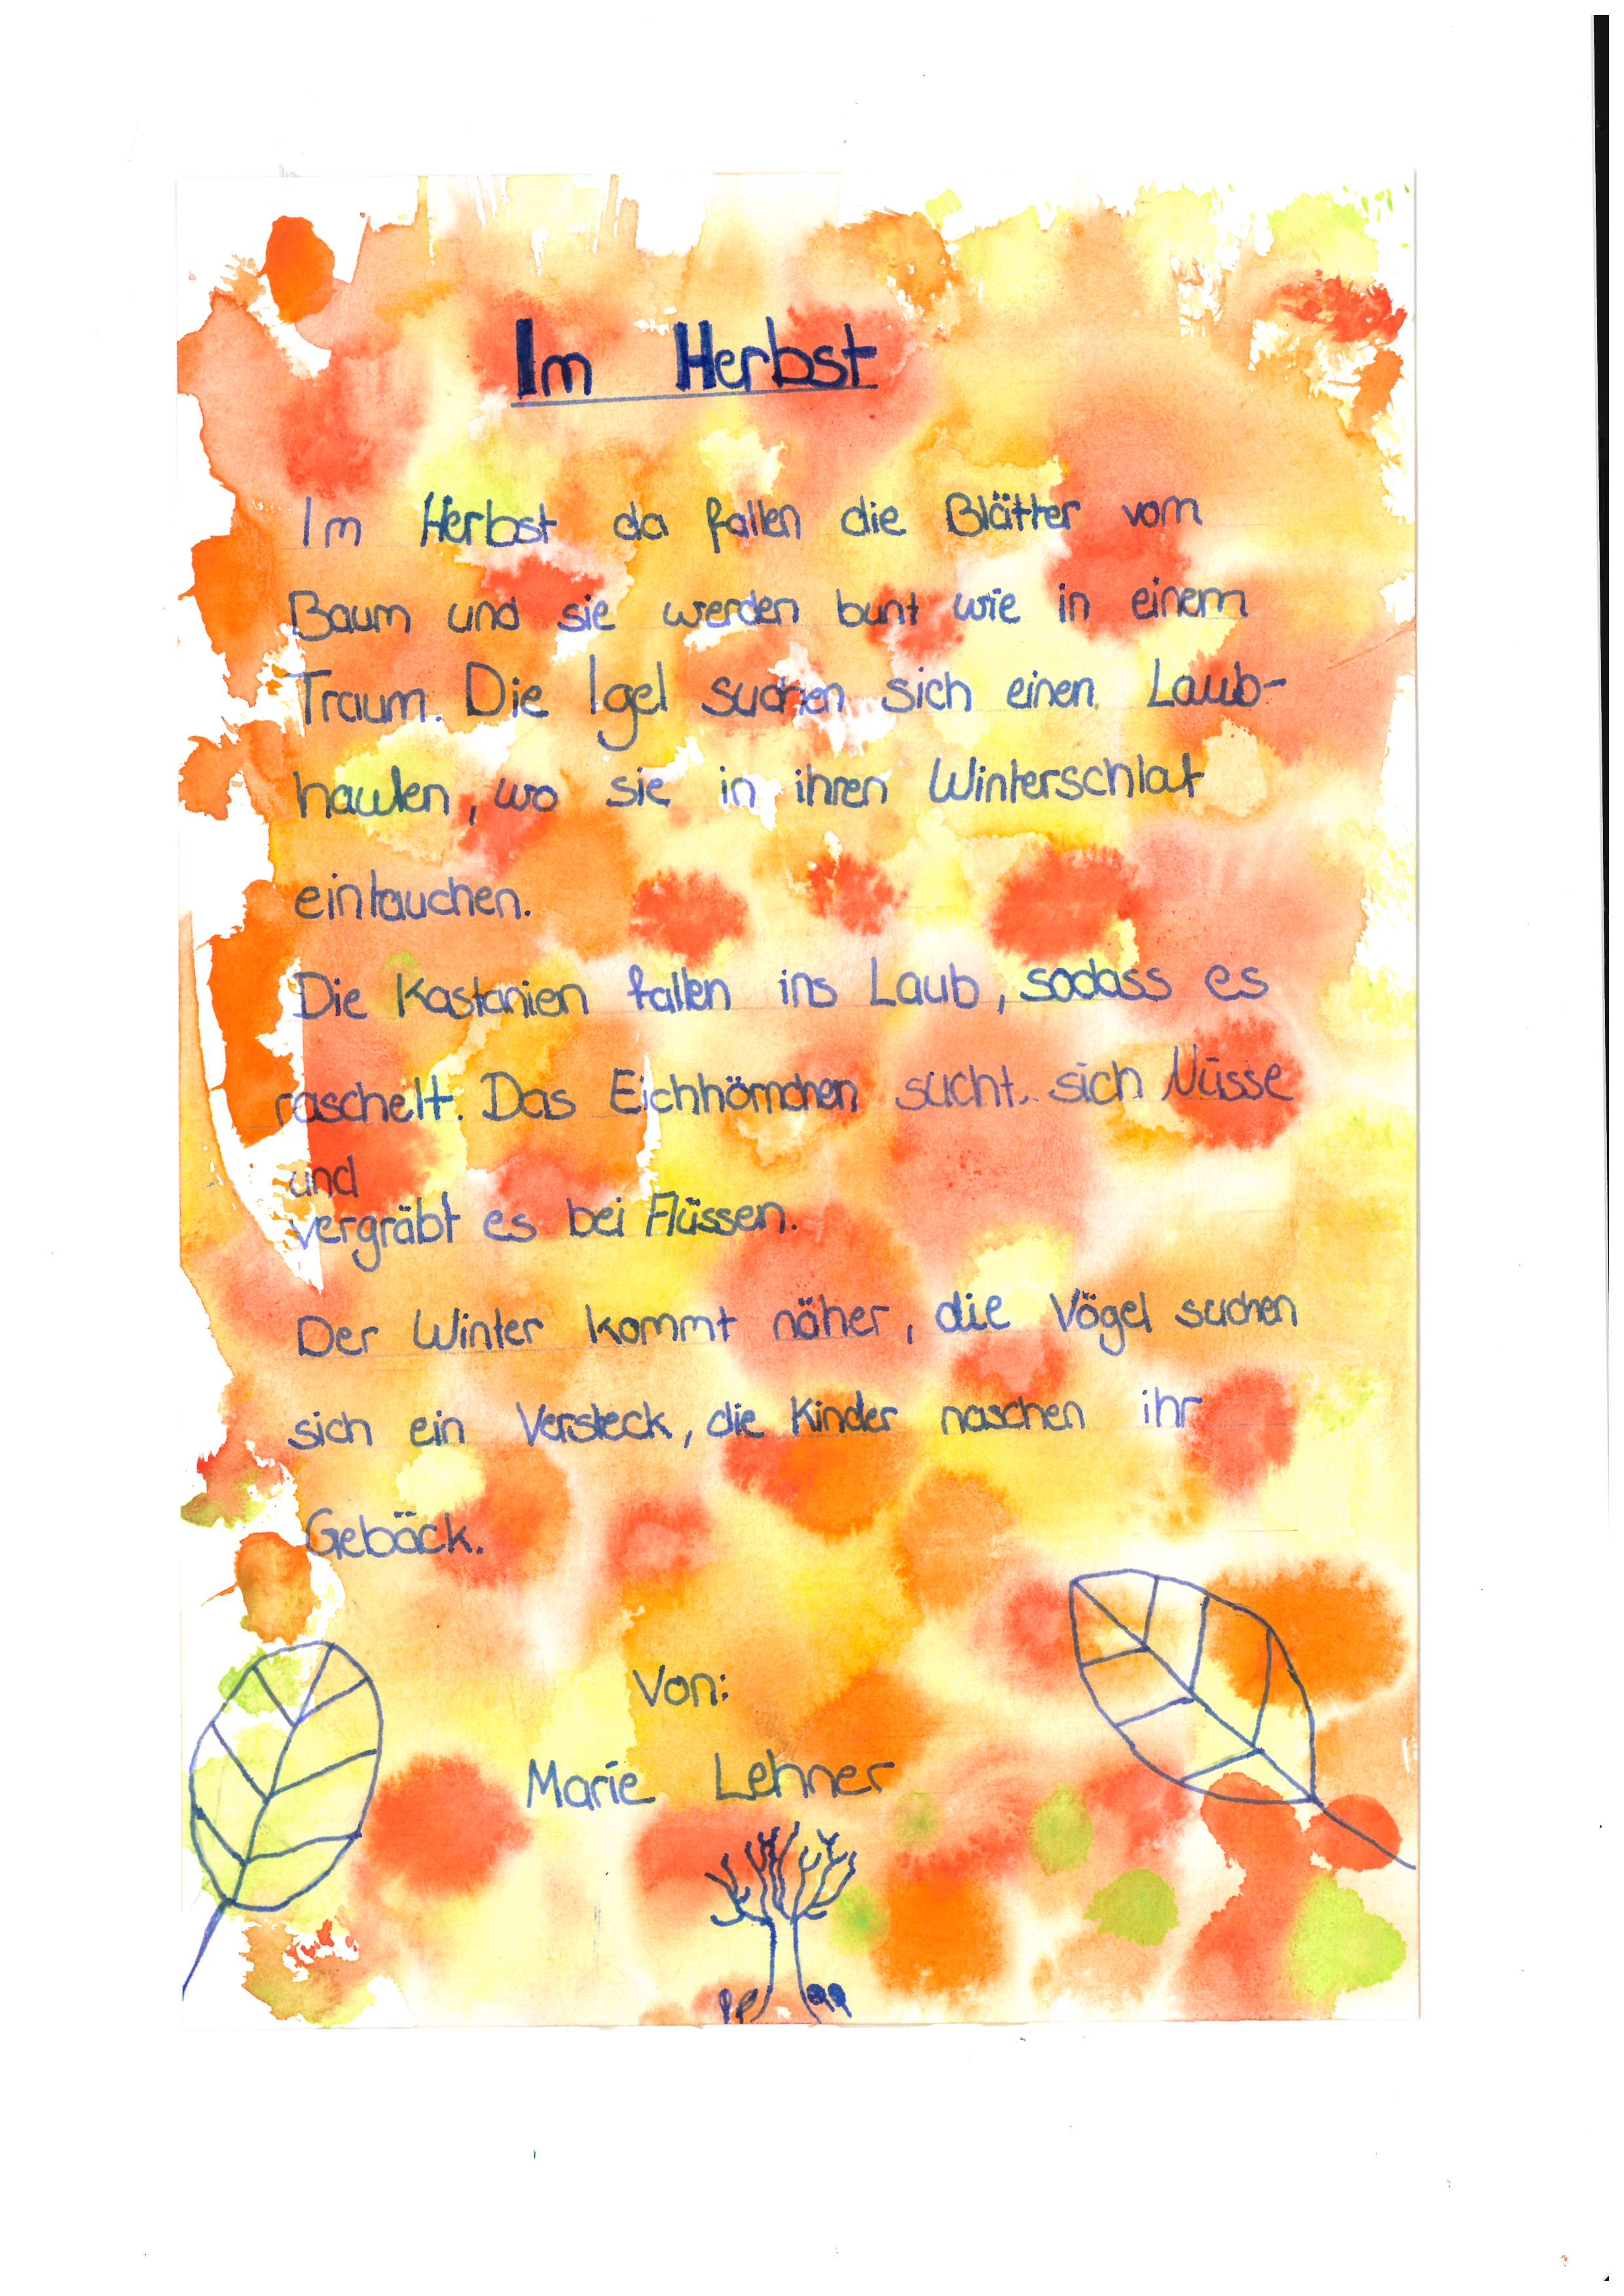 Im Herbst
Im Herbst da fallen die Blätter vom
Baum und sie werden bunt wie in einem
Traum. Die Igel suchen sich einen Laub-
haufen, wo sie in ihren Winterschlaf
eintauchen.
Die Kastanien fallen ins Laub, sodass es
raschelt. Das Eichhörnchen sucht sich Nüsse
und
vergräbt es bei Flüssen.
Der Winter kommt näher, die Vögel suchen
sich ein Versteck, die Kinder naschen ihr
Gebäck.
Von:
Marie Lehner